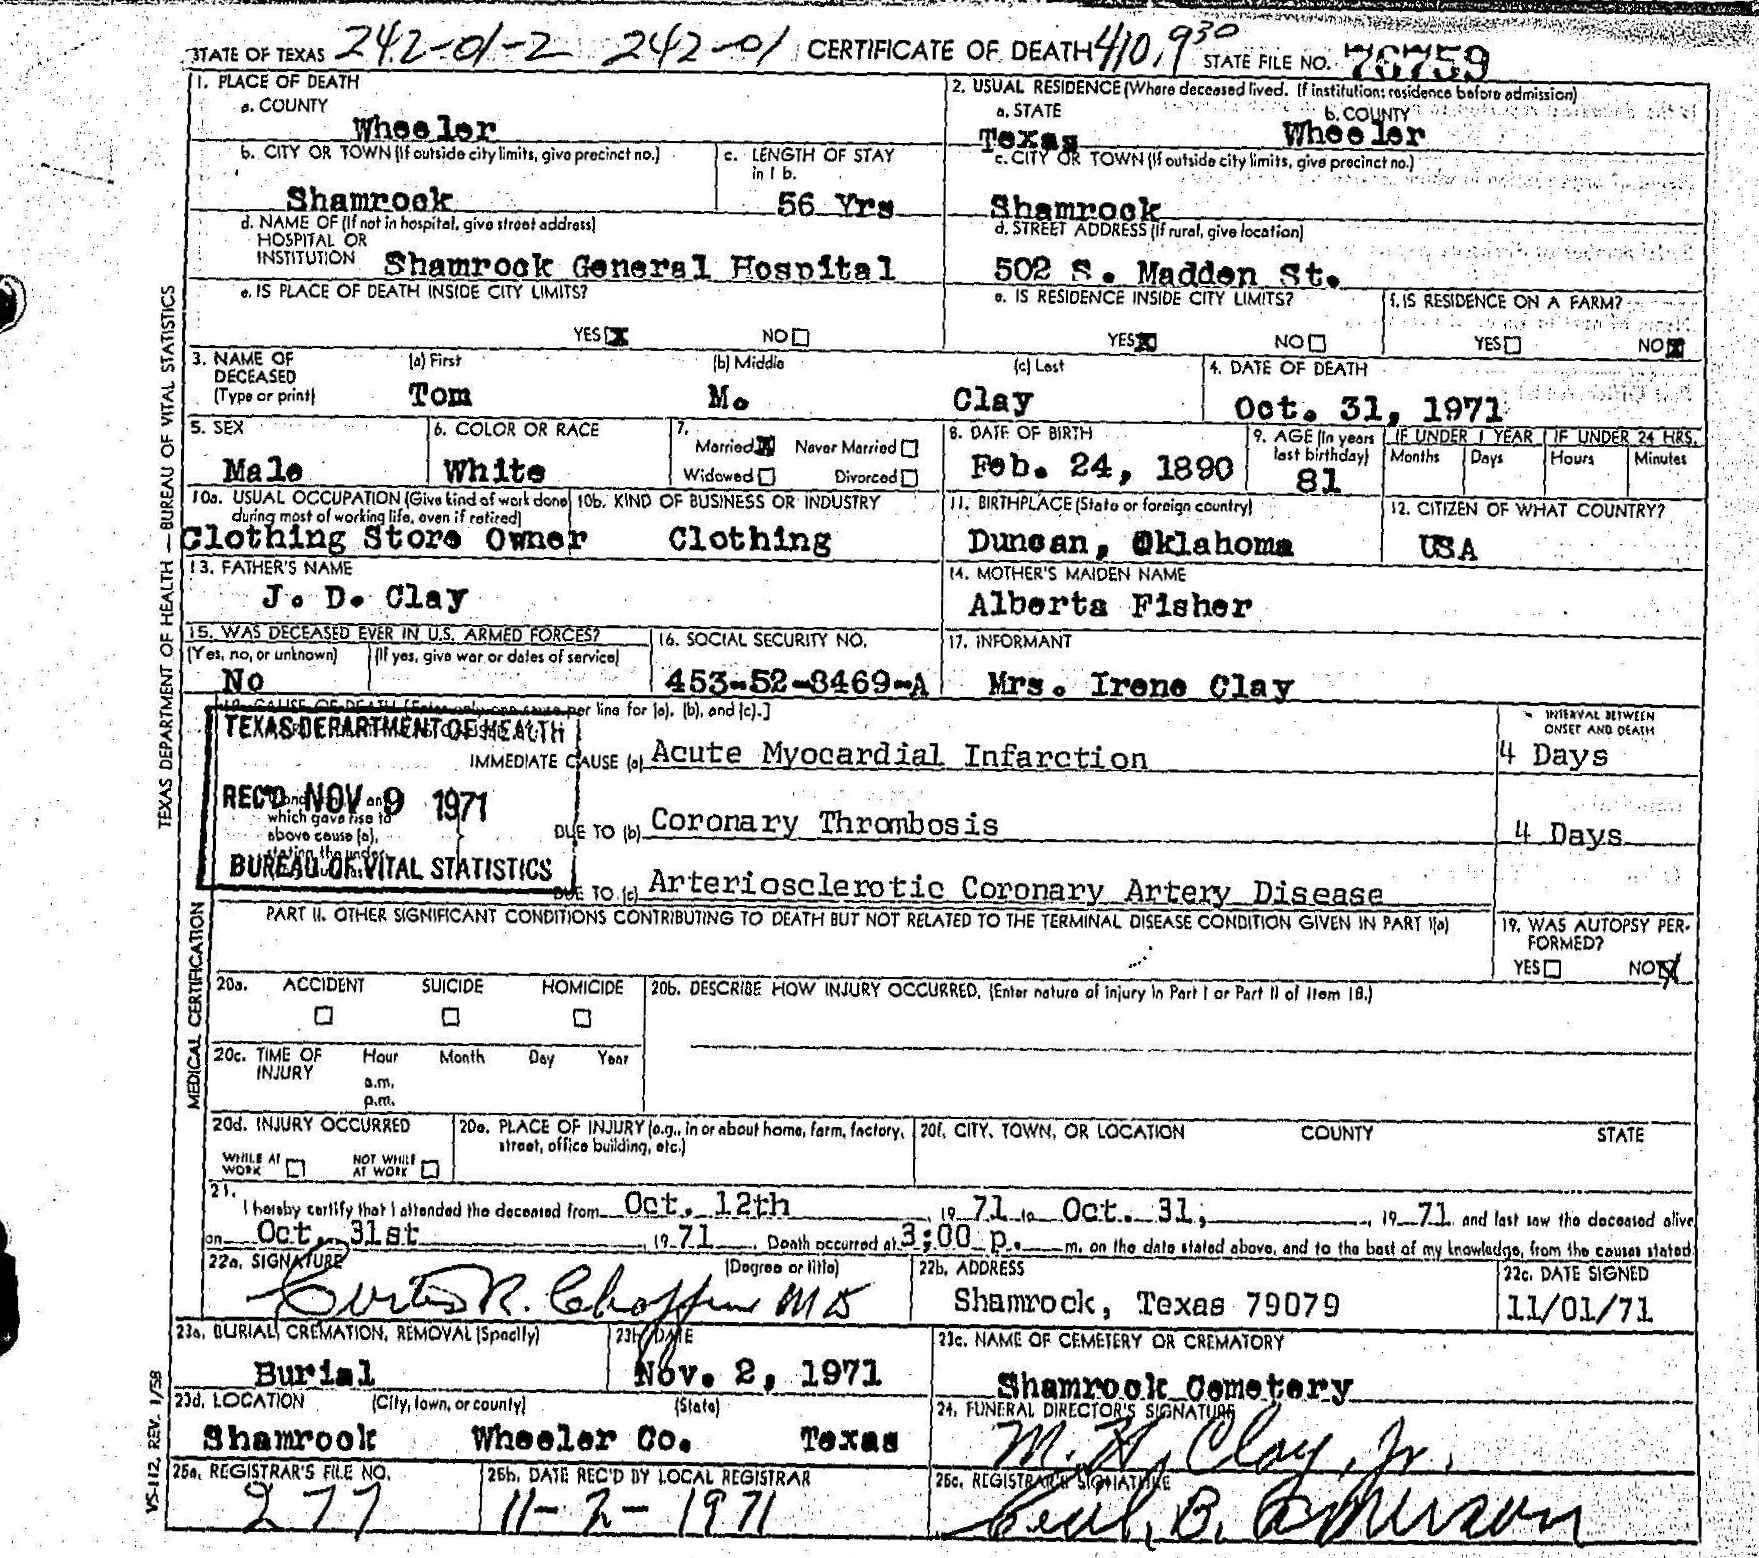 STATE OF TEXAS 242-01-2 242-01 CERTIFICATE OF DEATH 410.930 STATE FILE NO. 76759
1. PLACE OF DEATH
a. COUNTY
Wheeler
2. USUAL RESIDENCE (Where deceased lived. If institution: residence before admission)
a. STATE b. COUNTY
Texas Wheeler
b. CITY OR TOWN (If outside city limits, give precinct no.) c. LENGTH OF STAY in 1 b.
Shamrock 56 Yrs
c. CITY OR TOWN (If outside city limits, give precinct no.)
Shamrock
d. NAME OF (If not in hospital, give street address)
HOSPITAL OR
INSTITUTION Shamrock General Hospital
d. STREET ADDRESS (If rural, give location)
502 S. Madden St.
e. IS PLACE OF DEATH INSIDE CITY LIMITS?
YES NO
e. IS RESIDENCE INSIDE CITY LIMITS? f. IS RESIDENCE ON A FARM?
YES NO YES NO
3. NAME OF DECEASED (Type or print) (a) First (b) Middle (c) Last 4. DATE OF DEATH
Tom M. Clay Oct. 31, 1971
5. SEX 6. COLOR OR RACE 7. Married Never Married Widowed Divorced 8. DATE OF BIRTH 9. AGE (In years last birthday) IF UNDER 1 YEAR IF UNDER 24 HRS.
Months Days Hours Minutes
Male White Feb. 24, 1890 81
10a. USUAL OCCUPATION (Give kind of work done during most of working life, even if retired) 10b. KIND OF BUSINESS OR INDUSTRY 11. BIRTHPLACE (State or foreign country) 12. CITIZEN OF WHAT COUNTRY?
Clothing Store Owner Clothing Duncan, Oklahoma USA
13. FATHER'S NAME 14. MOTHER'S MAIDEN NAME
J. D. Clay Alberta Fisher
15. WAS DECEASED EVER IN U.S. ARMED FORCES? 16. SOCIAL SECURITY NO. 17. INFORMANT
(Yes, no, or unknown) (If yes, give war or dates of service)
No 453-52-8469-A Mrs. Irene Clay
18. CAUSE OF DEATH [Enter only one cause per line for (a), (b), and (c).]
INTERVAL BETWEEN
ONSET AND DEATH
TEXAS DEPARTMENT OF HEALTH
IMMEDIATE CAUSE (a) Acute Myocardial Infarction 4 Days
REC'D NOV 9 1971
which gave rise to
above cause (a),
stating the under
DUE TO (b) Coronary Thrombosis 4 Days
BUREAU OF VITAL STATISTICS
DUE TO (c) Arteriosclerotic Coronary Artery Disease
PART II. OTHER SIGNIFICANT CONDITIONS CONTRIBUTING TO DEATH BUT NOT RELATED TO THE TERMINAL DISEASE CONDITION GIVEN IN PART I(a)
19. WAS AUTOPSY PER-
FORMED?
YES NO
20a. ACCIDENT SUICIDE HOMICIDE 20b. DESCRIBE HOW INJURY OCCURRED. (Enter nature of injury in Part I or Part II of Item 18.)
20c. TIME OF INJURY Hour Month Day Year
a.m.
p.m.
20d. INJURY OCCURRED 20e. PLACE OF INJURY (e.g., in or about home, farm, factory, street, office building, etc.) 20f. CITY, TOWN, OR LOCATION COUNTY STATE
WHILE AT WORK NOT WHILE AT WORK
21.
I hereby certify that I attended the deceased from Oct. 12th 19 71 to Oct. 31, 19 71 and last saw the deceased alive
on Oct. 31st 19 71. Death occurred at 3:00 p. m. on the date stated above, and to the best of my knowledge, from the causes stated
22a. SIGNATURE (Degree or title) 22b. ADDRESS 22c. DATE SIGNED
Curtis R. Chaffin MD Shamrock, Texas 79079 11/01/71
23a. BURIAL, CREMATION, REMOVAL (Specify) 23b. DATE 23c. NAME OF CEMETERY OR CREMATORY
Burial Nov. 2, 1971 Shamrock Cemetery
23d. LOCATION (City, town, or county) (State) 24. FUNERAL DIRECTOR'S SIGNATURE
Shamrock Wheeler Co. Texas M. H. Clay, Jr.
25a. REGISTRAR'S FILE NO. 25b. DATE REC'D BY LOCAL REGISTRAR 25c. REGISTRAR'S SIGNATURE
277 11-2-1971 B.
TEXAS DEPARTMENT OF HEALTH — BUREAU OF VITAL STATISTICS
MEDICAL CERTIFICATION
VS-112, REV. 1/58